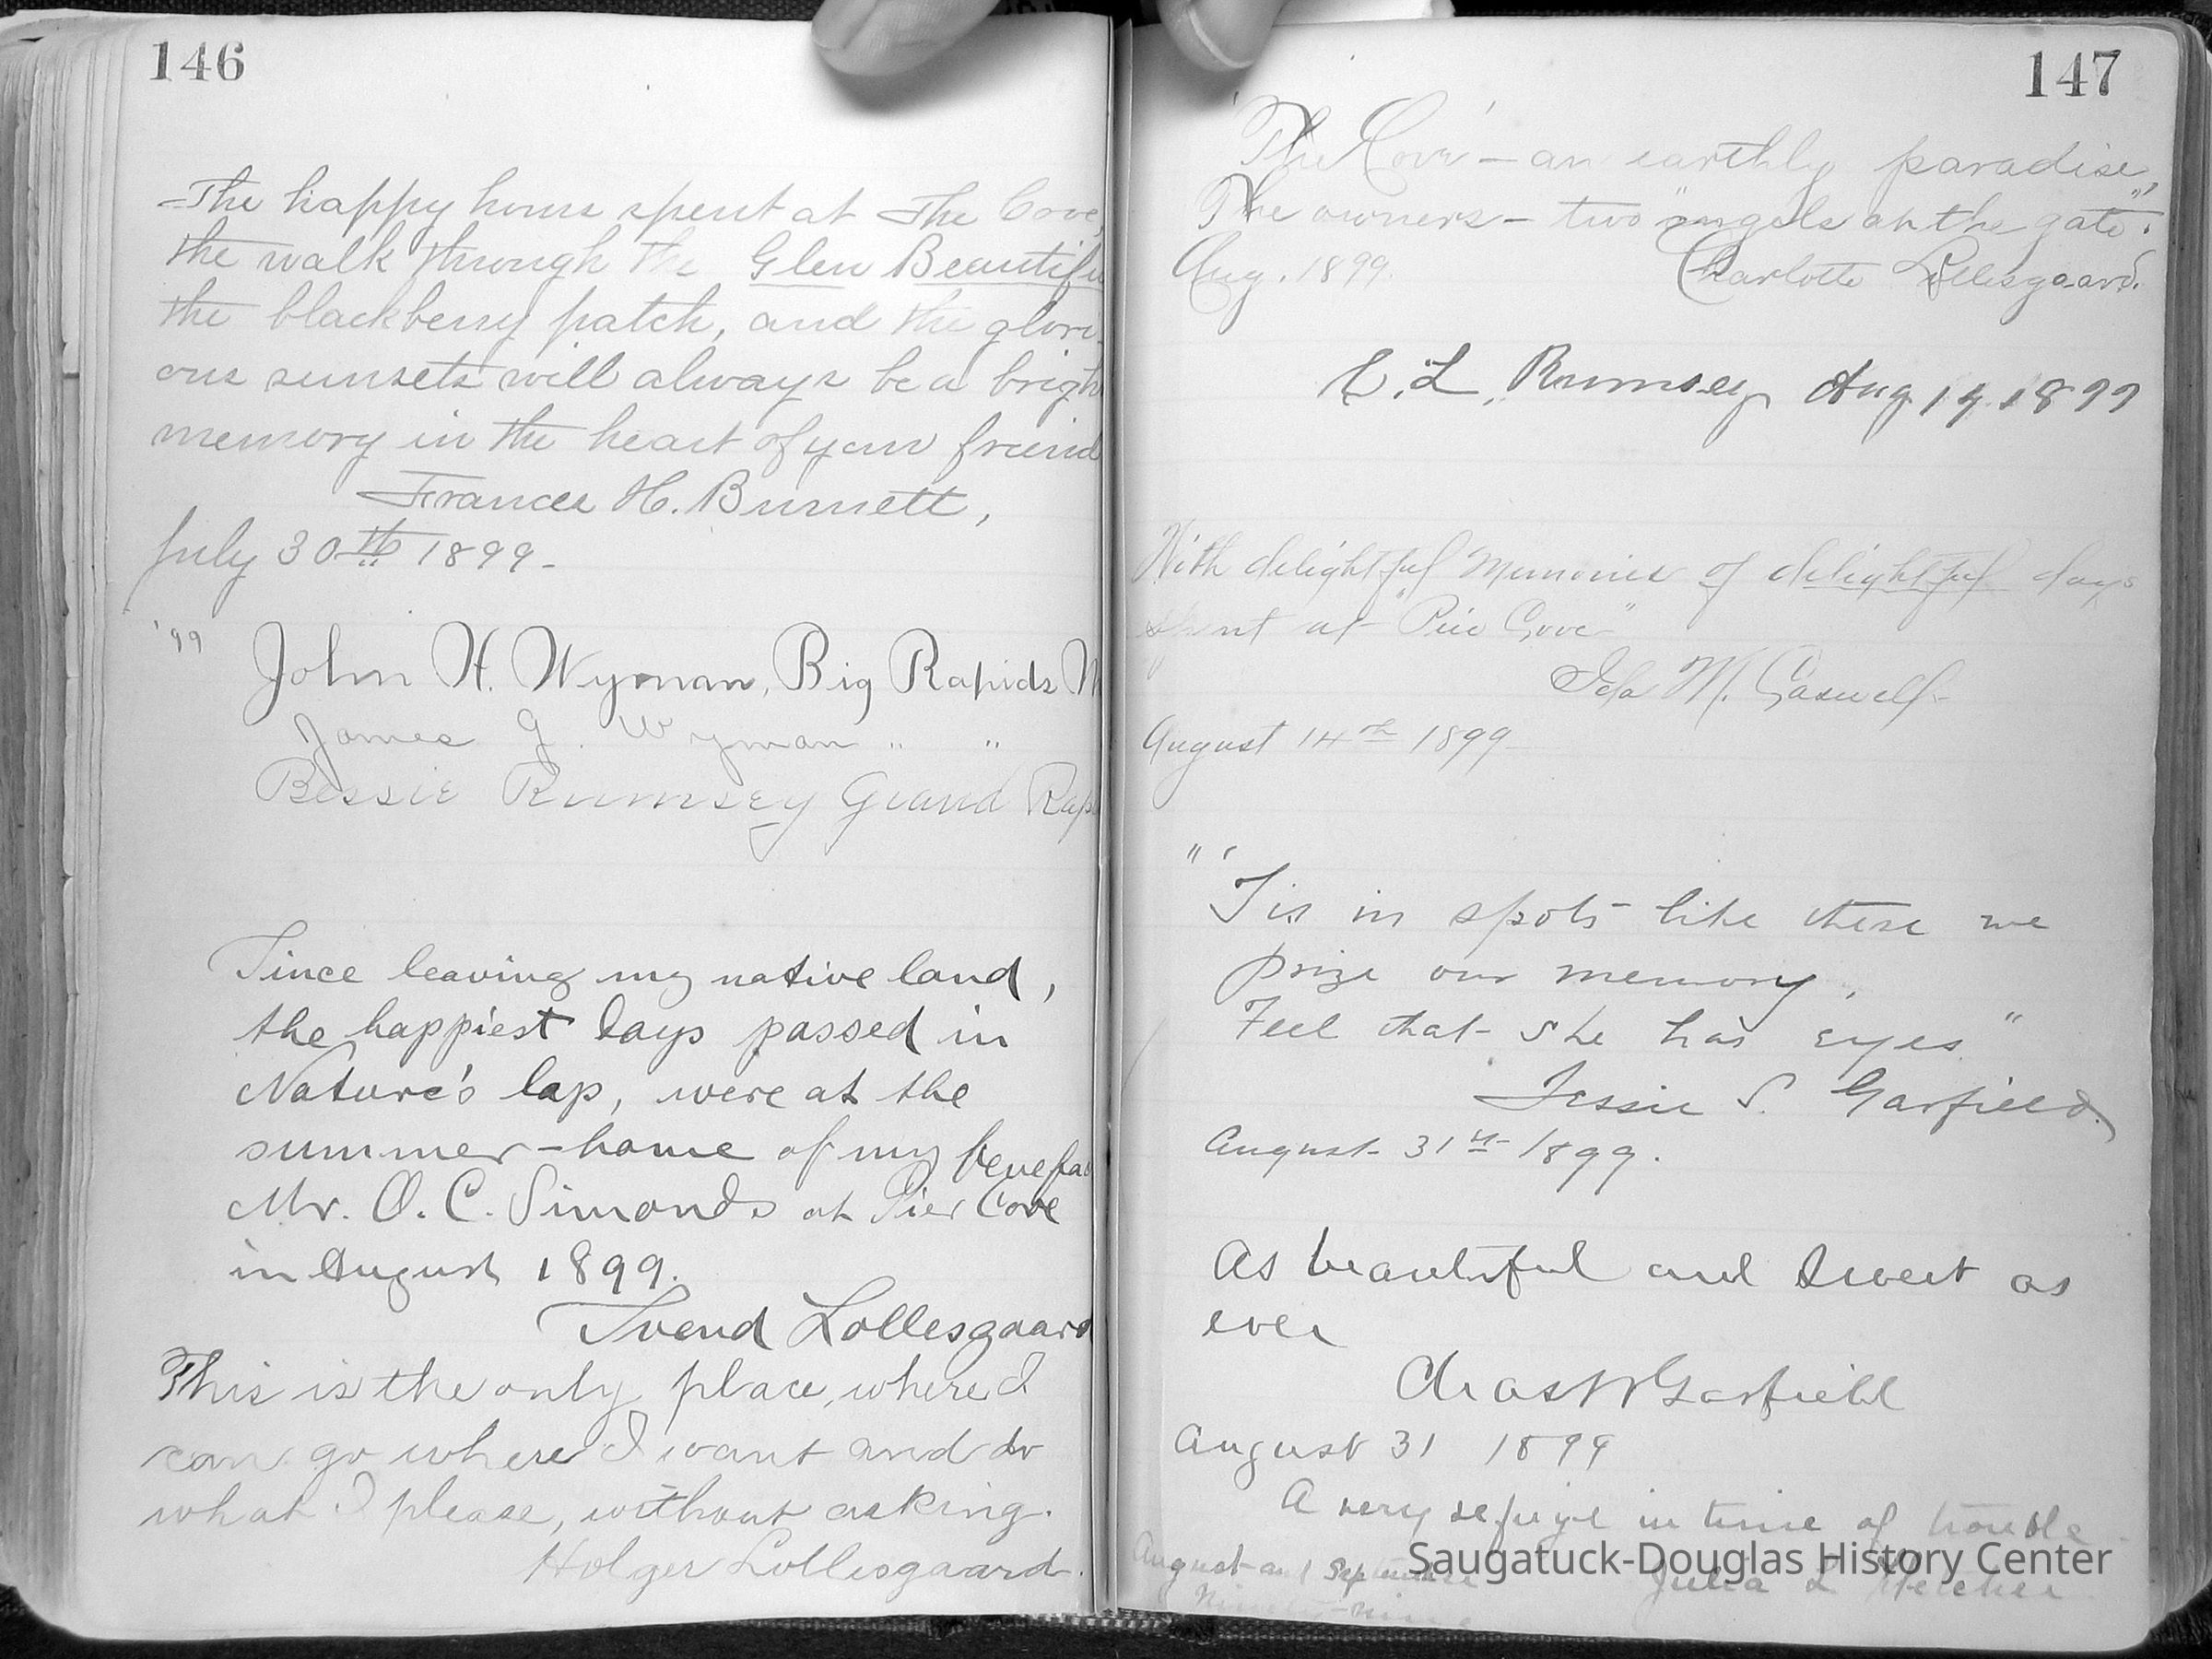 146
The happy hours spent at The Cove,
the walk through the Glen Beautifu
the blackberry patch, and the glori-
ous sunsets will always be a brigh
memory in the heart of your friend
Frances H. Burnett,
July 30th 1899-
'99 John H. Wyman, Big Rapids M
James G. Wyman " "
Bessie Rumsey Grand Rap
Since leaving my native land,
the happiest days passed in
Nature's lap, were at the
summer-home of my benefac
Mr. O. C. Simonds at Pier Cove
in August 1899.
Svend Lollesgaard
This is the only place, where I
can go where I want and do
what I please, without asking.
Holger Lollesgaard.
147
'The Cove' - an earthly paradise,
The owners - two "angels at the gate".
Aug. 1899. Charlotte Lollesgaard.
L. Rumsey Aug 14 1899
With delightful Memories of delightful days
spent at "Pier Cove"
Ida M. Caswell-
August 14th 1899-
"'Tis in spots like these we
prize our memory,
Feel that she has eyes"
Jessie S. Garfield.
August 31st 1899.
As beautiful and sweet as
ever
Chas W Garfield
August 31 1899
A very refuge in time of trouble
August and September Julia L
Ninety-nine
Saugatuck-Douglas History Center